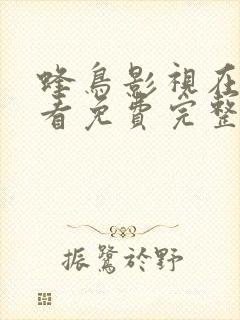 蜂鳥影視在
看免費完整
振鷺於野